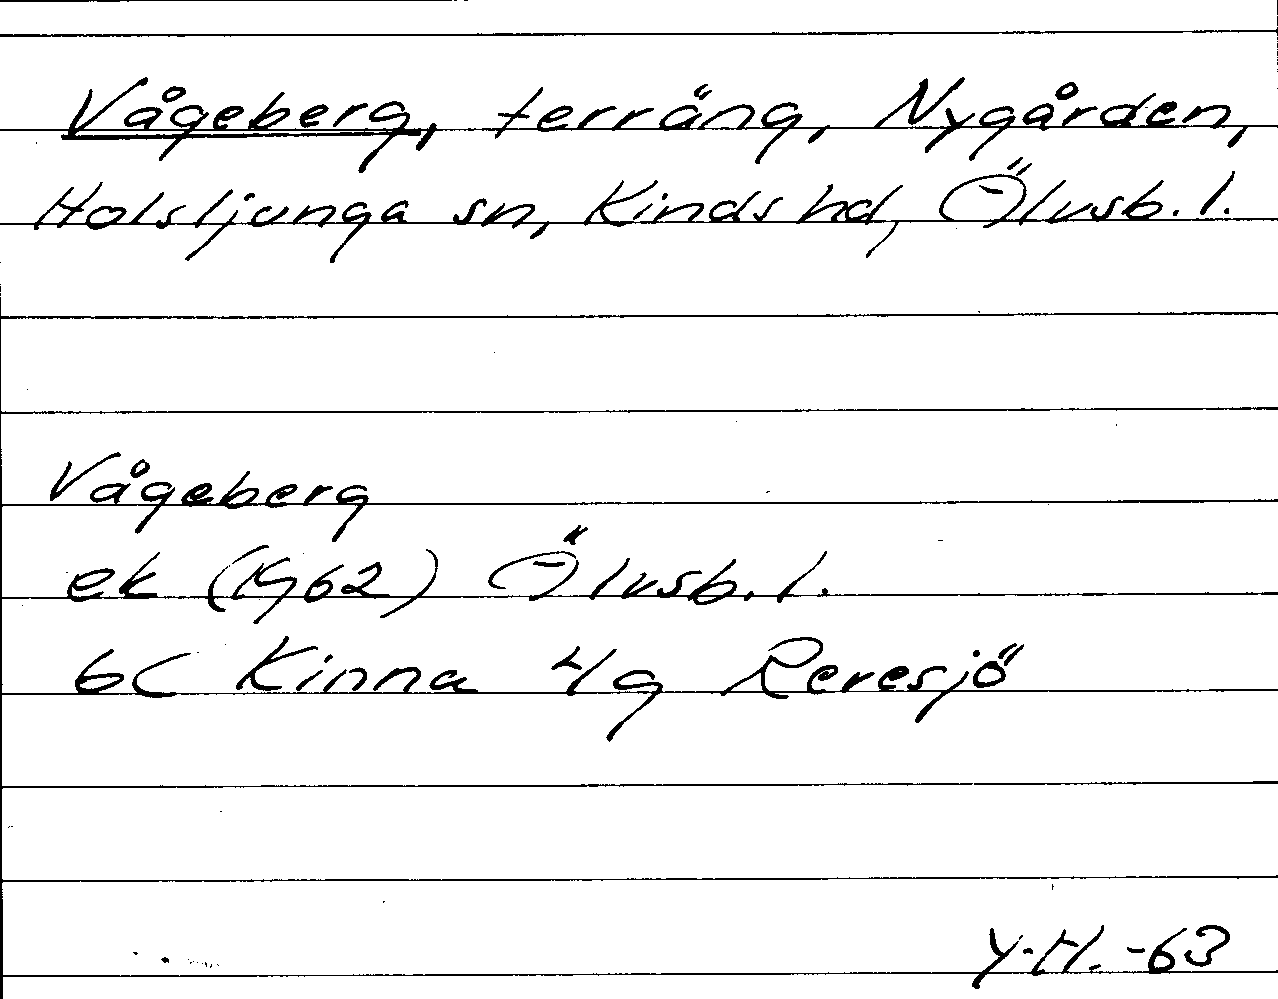 Vågeberg, terräng, Nygården,
Holsljunga sn, Kinds hd, Älvsb. l.
Vågeberg
ek (1962) Älvsb. l.
6C Kinna 4g Reresjö
Y.H. -63